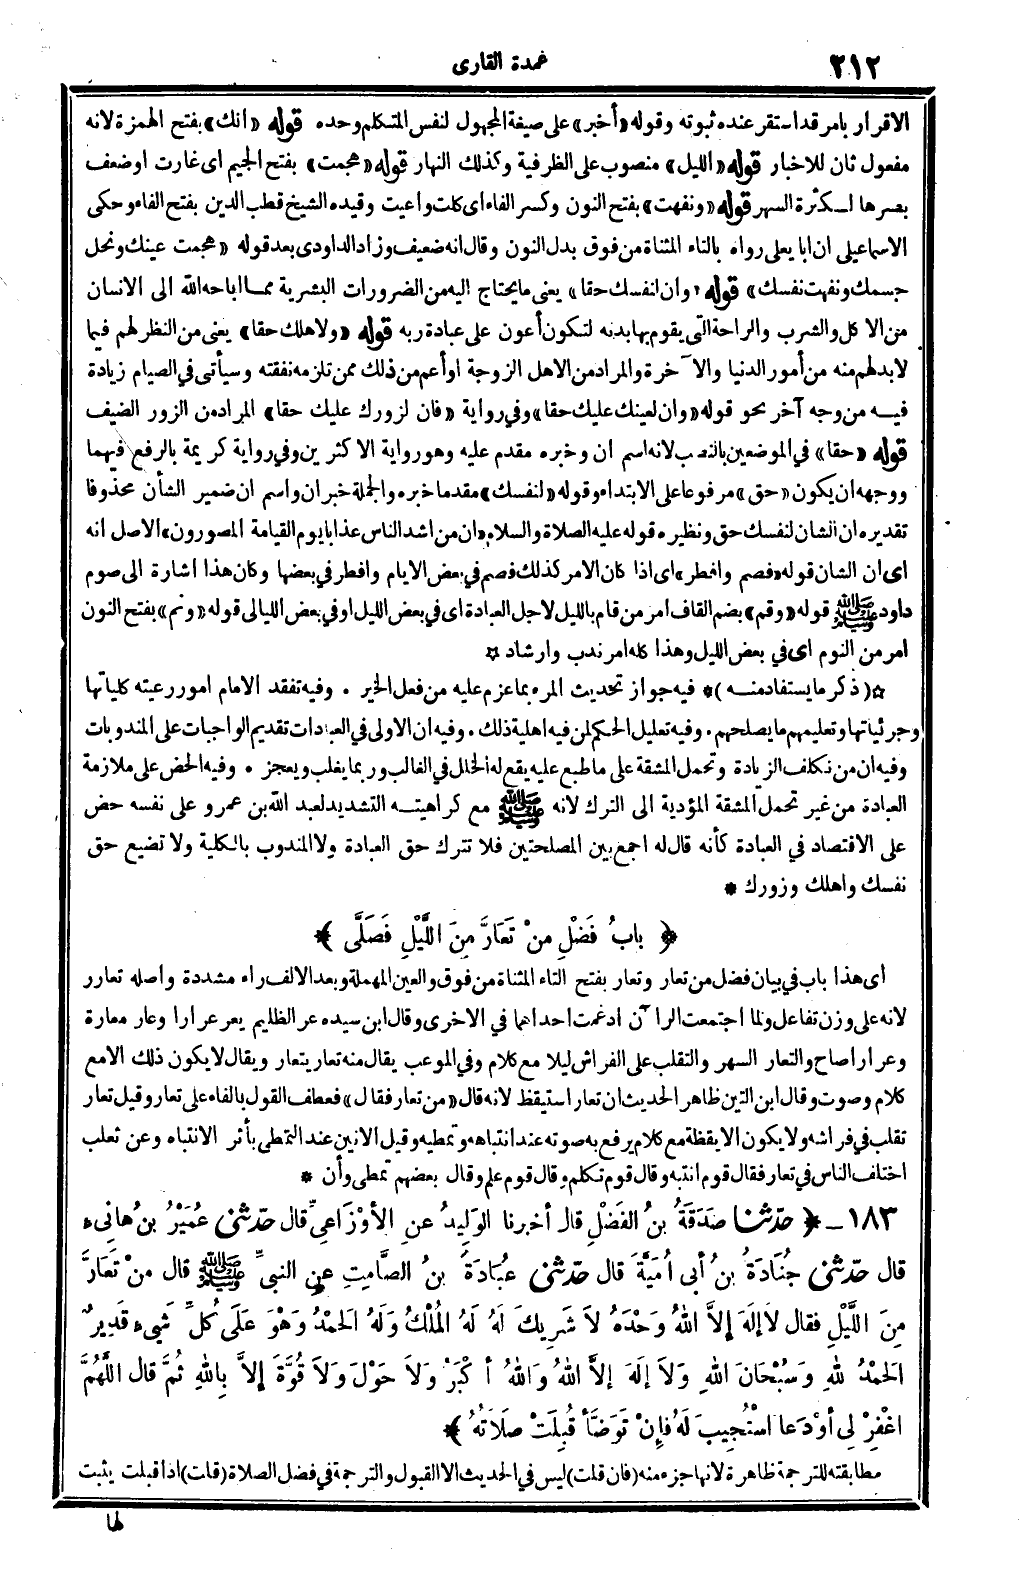 ٢١٢
عمدة القارى
الاقرار بامر قد استقر عنده ثبوته وقوله «أخبر» على صيغة المجهول لنفس المتكلم وحده قوله «انك» بفتح الهمزة لانه
مفعول ثان للاخبار قوله «الليل» منصوب على الظرفية وكذلك النهار قوله «هجمت» بفتح الجيم اى غارت او ضعف
بصرها لكثرة السهر قوله «ونفهت» بفتح النون وكسر الفاء اى كلت واعيت وقيده الشيخ قطب الدين بفتح الفاء وحكى
الاسماعيلى ان ابا يعلى رواه بالتاء المثناة من فوق بدل النون وقال انه ضعيف وزاد الداودى بعد قوله «هجمت عينك ونحل
جسمك ونفهت نفسك» قوله «وان لنفسك حقا» يعنى ما يحتاج اليه من الضرورات البشرية مما اباحه الله الى الانسان
من الاكل والشرب والراحة التى يقوم بها بدنه لتكون أعون على عبادة ربه قوله «ولاهلك حقا» يعنى من النظر لهم فيما
لا بد لهم منه من أمور الدنيا والآخرة والمراد من الاهل الزوجة او أعم من ذلك ممن تلزمه نفقته وسيأتى فى الصيام زيادة
فيه من وجه آخر نحو قوله «وان لعينك عليك حقا» وفى رواية «فان لزورك عليك حقا» المراد من الزور الضيف
قوله «حقا» فى الموضعين بالنصب لانه اسم ان وخبره مقدم عليه وهو رواية الاكثرين وفى رواية كريمة بالرفع فيهما
ووجهه ان يكون «حق» مرفوعا على الابتداء وقوله «لنفسك» مقدما خبره والجملة خبر ان واسم ان ضمير الشأن محذوفا
تقديره ان الشان لنفسك حق ونظيره قوله عليه الصلاة والسلام «ان من اشد الناس عذابا يوم القيامة المصورون» الاصل انه
اى ان الشان قوله «فصم وافطر» اى اذا كان الامر كذلك فصم فى بعض الايام وافطر فى بعضها وكان هذا اشارة الى صوم
داود ﷺ قوله «وقم» بضم القاف امر من قام بالليل لاجل العبادة اى فى بعض الليل او فى بعض الليالى قوله «ونم» بفتح النون
امر من النوم اى فى بعض الليل وهذا كله امر ندب وارشاد ☆
☆(ذكر ما يستفاد منه)* فيه جواز تحديث المرء بما عزم عليه من فعل الخير . وفيه تفقد الامام امور رعيته كلياتها
وجزئياتها وتعليمهم ما يصلحهم . وفيه تعليل الحكم لمن فيه اهلية ذلك . وفيه ان الاولى فى العبادات تقديم الواجبات على المندوبات
وفيه ان من تكلف الزيادة وتحمل المشقة على ما طبع عليه يقع له الخلل فى الغالب وربما يغلب ويعجز . وفيه الحض على ملازمة
العبادة من غير تحمل المشقة المؤدية الى الترك لانه ﷺ مع كراهيته التشديد لعبد الله بن عمرو على نفسه حض
على الاقتصاد فى العبادة كأنه قال له اجمع بين المصلحتين فلا تترك حق العبادة ولا المندوب بالكلية ولا تضيع حق
نفسك واهلك وزورك *
﴿ بابُ فَضْلِ مِنْ تَعَارَّ مِنَ اللَّيْلِ فَصَلَّى ﴾
اى هذا باب فى بيان فضل من تعار وتعار بفتح التاء المثناة من فوق والعين المهملة وبعد الالف راء مشددة واصله تعارر
لانه على وزن تفاعل ولما اجتمعت الرا آن ادغمت احداهما فى الاخرى وقال ابن سيده عر الظليم يعر عرارا وعار معارة
وعرارا صاح والتعار السهر والتقلب على الفراش ليلا مع كلام وفى الموعب يقال منه تعار يتعار ويقال لا يكون ذلك الا مع
كلام وصوت وقال ابن التين ظاهر الحديث ان تعار استيقظ لانه قال «من تعار فقال» فعطف القول بالفاء على تعار وقيل تعار
تقلب فى فراشه ولا يكون الا يقظة مع كلام يرفع به صوته عند انتباهه وتمطيه وقيل الانين عند التمطى بأثر الانتباه وعن ثعلب
اختلف الناس فى تعار فقال قوم انتبه وقال قوم تكلم وقال قوم علم وقال بعضهم تمطى وأن *
١٨٣ ـ ﴿ حدّثنا صَدَقَةُ بنُ الفَضْلِ قال أخبرنا الوَلِيدُ عنِ الأوْزَاعِيِّ قال حدّثنى عُمَيْرُ بنُ هانِىءٍ
قال حدّثنى جُنَادَةُ بنُ أبى أُمَيَّةَ قال حدّثنى عُبَادَةُ بنُ الصَّامِتِ عنِ النبىِّ ﷺ قال منْ تَعَارَّ
مِنَ اللَّيْلِ فقال لاَ إلهَ إلاَّ اللهُ وَحْدَهُ لاَ شَرِيكَ لَهُ لَهُ المُلْكُ وَلَهُ الحَمْدُ وَهْوَ عَلَى كُلِّ شَىءٍ قَدِيرٌ
الحَمْدُ للهِ وَسُبْحَانَ اللهِ وَلاَ إلهَ إلاَّ اللهُ وَاللهُ أكْبَرُ وَلاَ حَوْلَ وَلاَ قُوَّةَ إلاَّ بِاللهِ ثُمَّ قال اللَّهُمَّ
اغْفِرْ لِى أوْ دَعا اسْتُجِيبَ لَهُ فإنْ تَوَضَّأ قُبِلَتْ صَلاَتُهُ ﴾
مطابقته للترجمة ظاهرة لانها جزء منه (فان قلت) ليس فى الحديث الا القبول والترجمة فى فضل الصلاة (قلت) اذا قبلت يثبت
لها